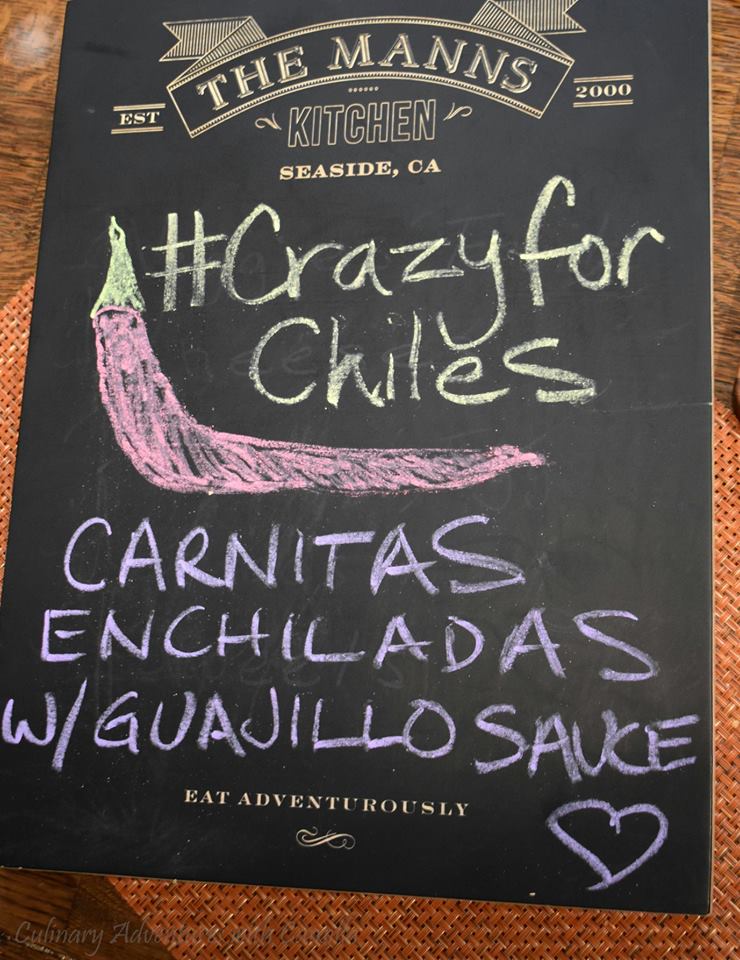 THE MANNS
EST
2000
KITCHEN
SEASIDE, CA
#Crazy for
Chiles
CARNITAS
ENCHILADAS
W/GUAJILLO SAUCE
EAT ADVENTUROUSLY
Culinary Adventures with Camilla